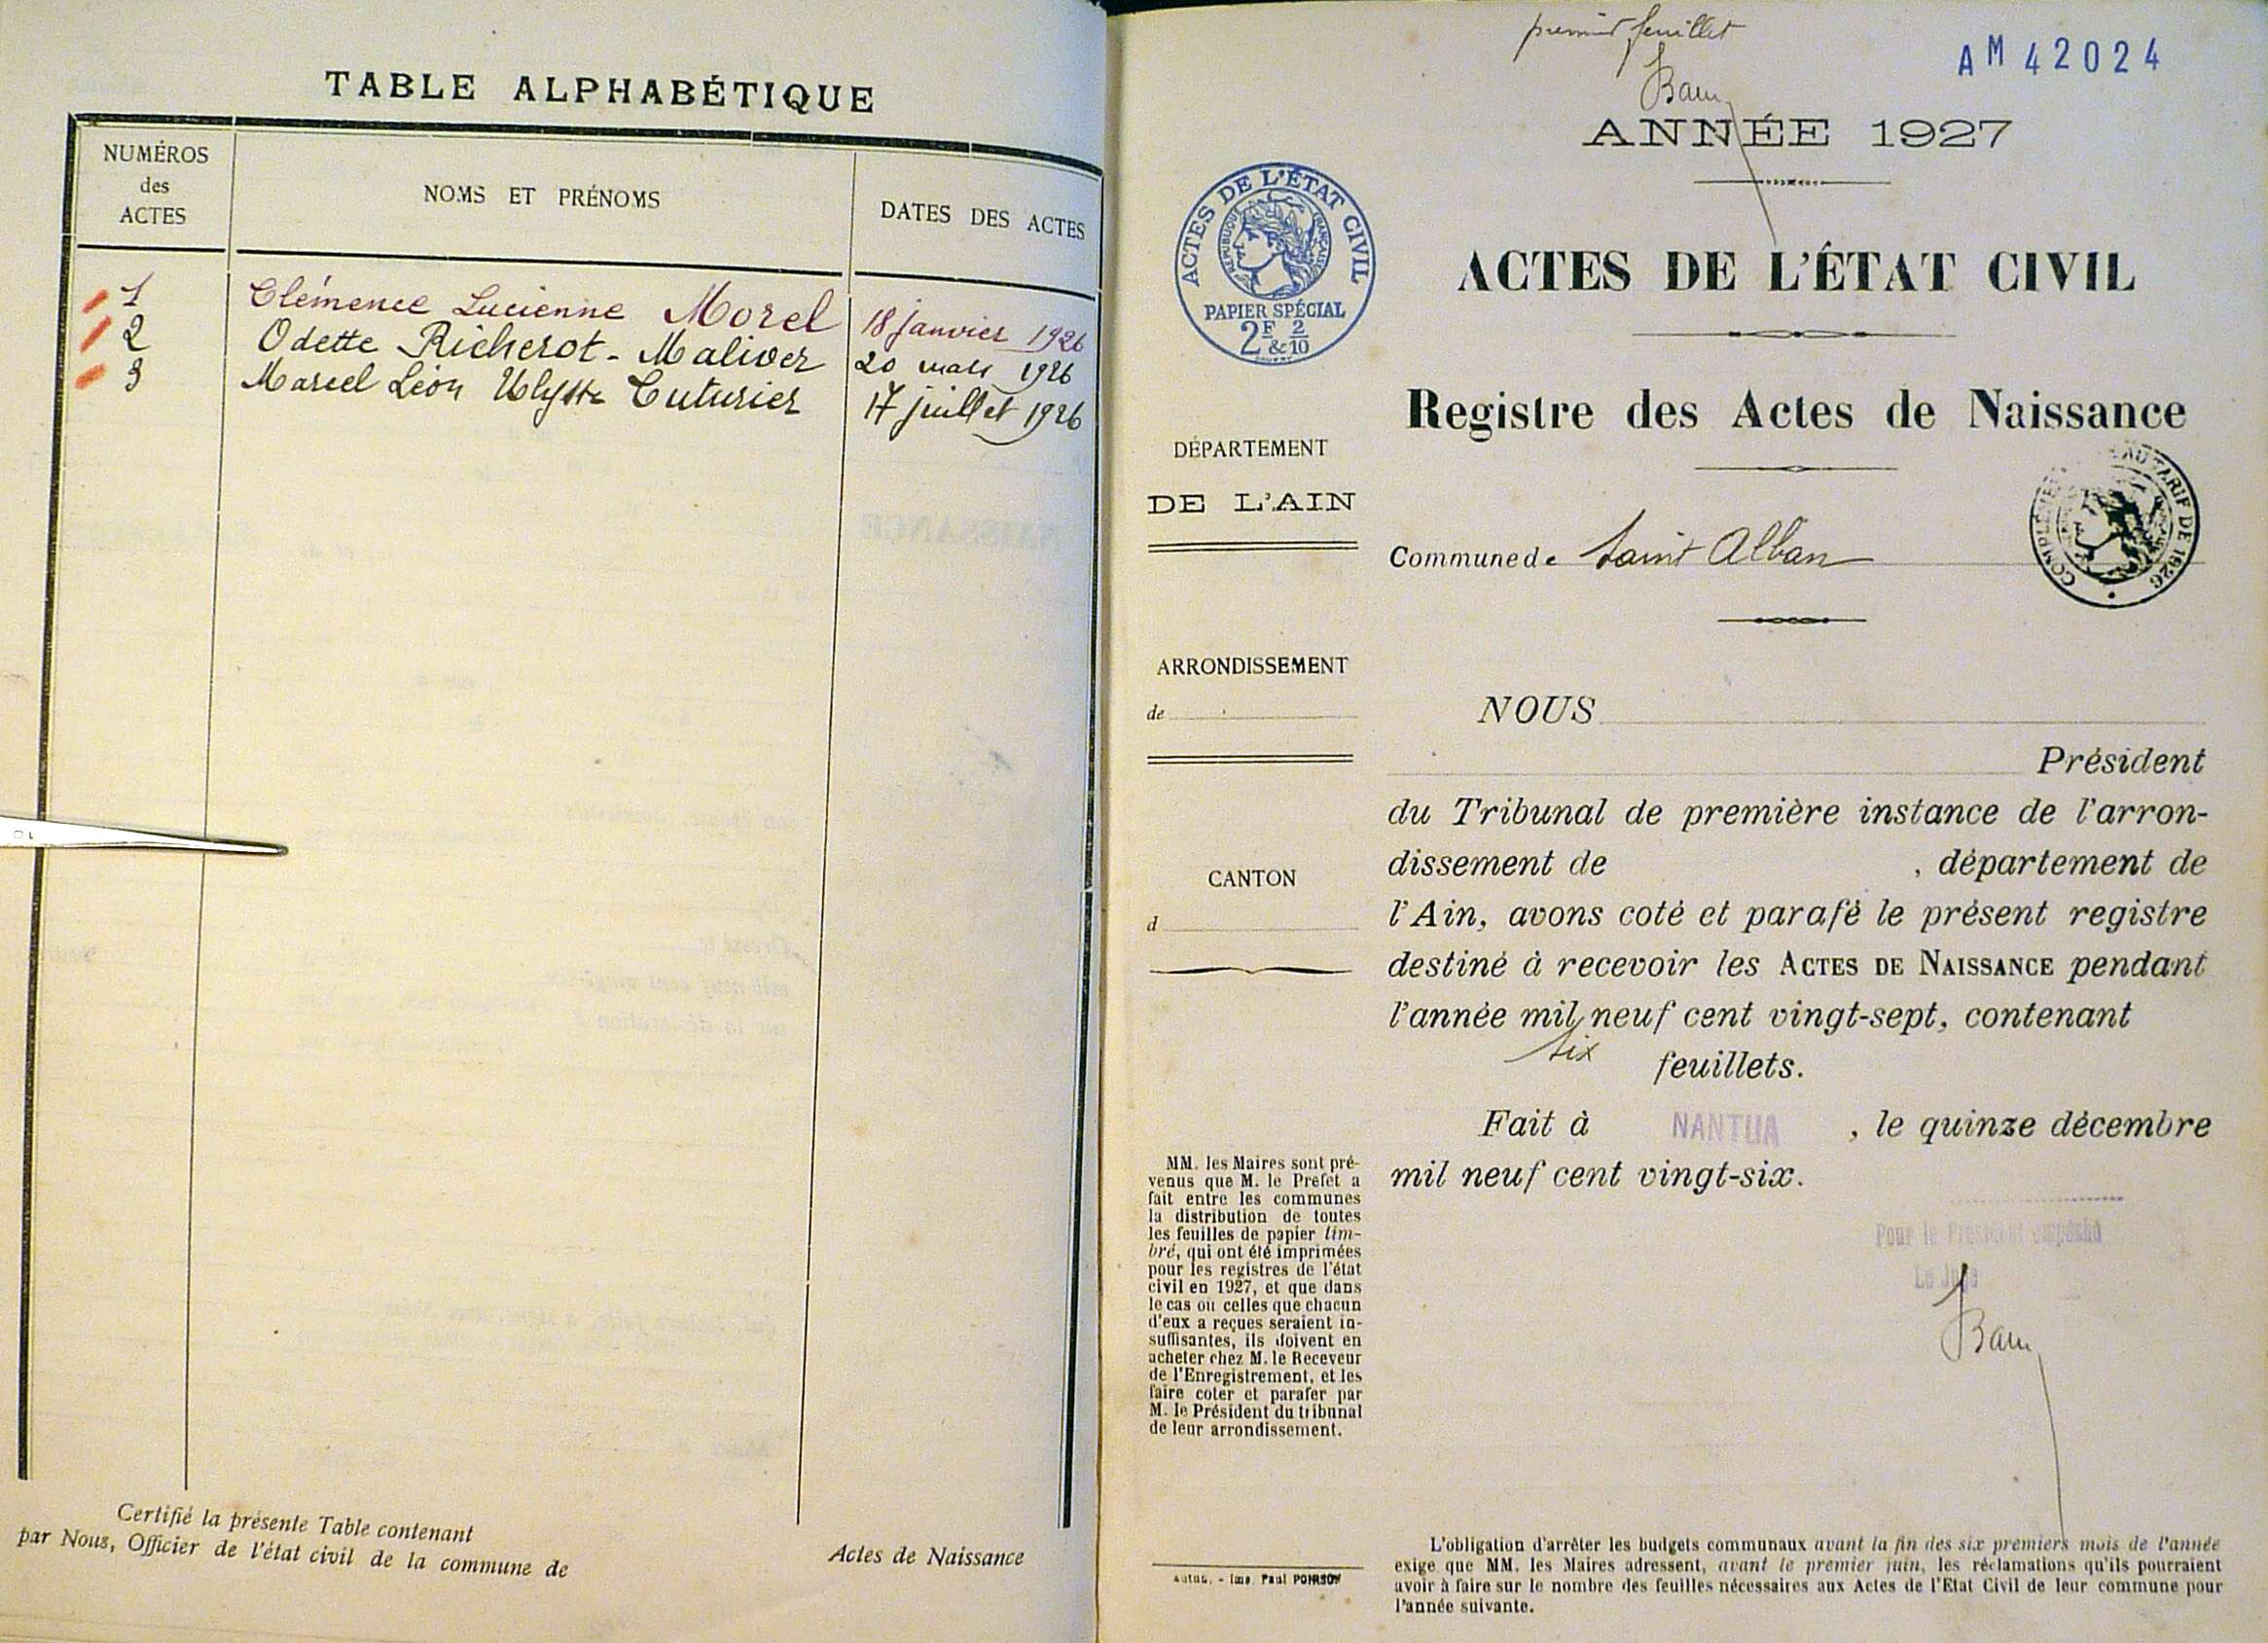 TABLE ALPHABÉTIQUE
NUMÉROS
des
ACTES
NOMS ET PRÉNOMS
DATES DES ACTES
1 Clémence Lucienne Morel 18 janvier 1926
2 Odette Richerot - Maliver 20 mars 1926
3 Marcel Léon Ulysse Cuturier 17 juillet 1926
Certifié la présente Table contenant
par Nous, Officier de l'état civil de la commune de
Actes de Naissance
premier feuillet
AM 42024
ANNÉE 1927
ACTES DE L'ÉTAT CIVIL
RÉPUBLIQUE FRANÇAISE
PAPIER SPÉCIAL
2F & 2/10
ACTES DE L'ÉTAT CIVIL
Registre des Actes de Naissance
DÉPARTEMENT
DE L'AIN
AU TARIF DE 1926
Commune de Saint Alban
ARRONDISSEMENT
de
CANTON
d
NOUS
Président
du Tribunal de première instance de l'arron-
dissement de , département de
l'Ain, avons coté et parafé le présent registre
destiné à recevoir les ACTES DE NAISSANCE pendant
l'année mil neuf cent vingt-sept, contenant
six feuillets.
Fait à NANTUA , le quinze décembre
mil neuf cent vingt-six.
Pour le Président empêché
Le Juge
MM. les Maires sont pré-
venus que M. le Préfet a
fait entre les communes
la distribution de toutes
les feuilles de papier tim-
bré, qui ont été imprimées
pour les registres de l'état
civil en 1927, et que dans
le cas où celles que chacun
d'eux a reçues seraient in-
suffisantes, ils doivent en
acheter chez M. le Receveur
de l'Enregistrement, et les
faire coter et parafer par
M. le Président du tribunal
de leur arrondissement.
Autun. - Imp. Paul POIRSON
L'obligation d'arrêter les budgets communaux avant la fin des six premiers mois de l'année
exige que MM. les Maires adressent, avant le premier juin, les réclamations qu'ils pourraient
avoir à faire sur le nombre des feuilles nécessaires aux Actes de l'Etat Civil de leur commune pour
l'année suivante.